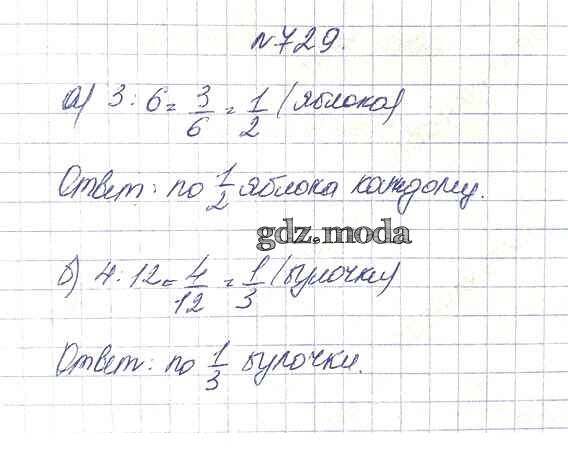 №729.
а) 3 : 6 = 3/6 = 1/2 (яблока)
Ответ: по 1/2 яблока каждому.
gdz.moda
б) 4 · 12 = 4/12 = 1/3 (булочки)
Ответ: по 1/3 булочки.